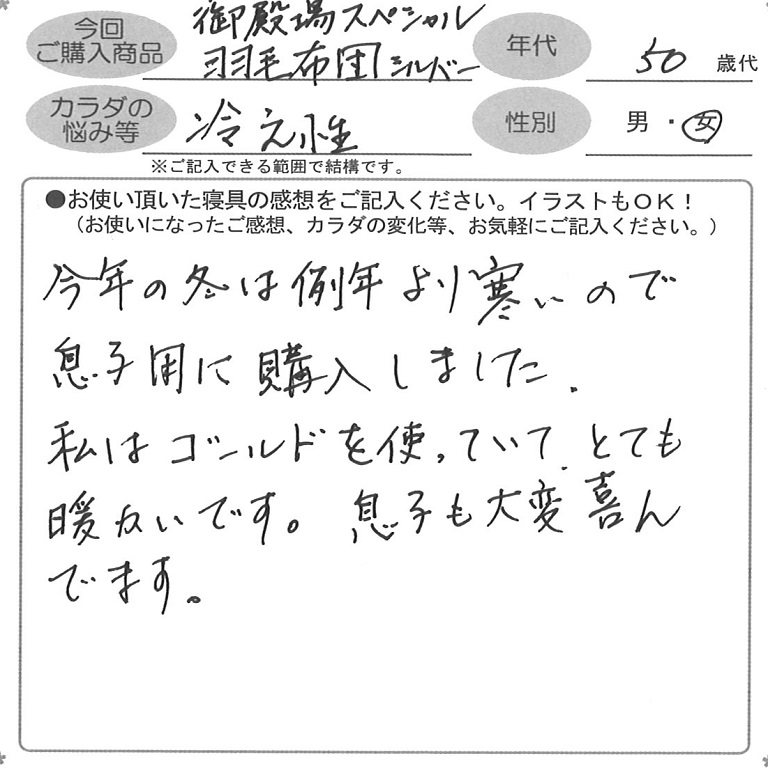 今回
ご購入商品
御殿場スペシャル
羽毛布団シルバー
年代
50 歳代
カラダの
悩み等
冷え性
性別
男・女
※ご記入できる範囲で結構です。
●お使い頂いた寝具の感想をご記入ください。イラストもOK！
（お使いになったご感想、カラダの変化等、お気軽にご記入ください。）
今年の冬は例年より寒いので
息子用に購入しました。
私はゴールドを使っていて、とても
暖かいです。息子も大変喜ん
でます。